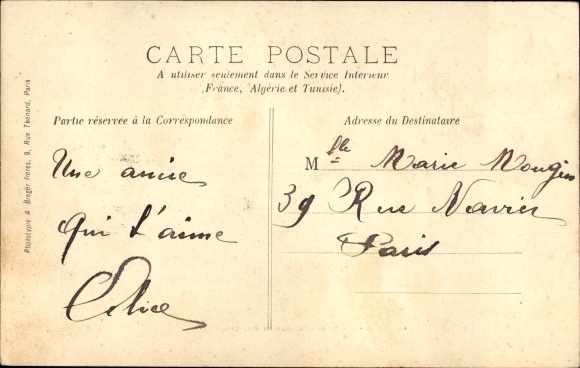 CARTE POSTALE
A utiliser seulement dans le Service Interieur
(France, Algérie et Tunisie).
Partie réservée à la Correspondance
Adresse du Destinataire
Une amie
qui t'aime
Mlle Marie Mougin
39 Rue Navier
Paris
Phototypie A Bergér frères, 9, Rue Thenard, Paris